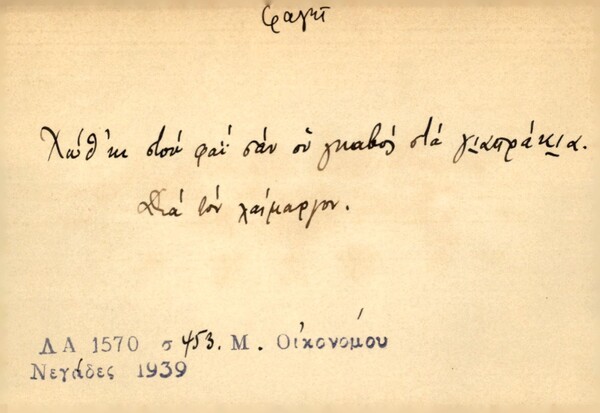 φαγητ
Χώθ'κι στού φαΐ σάν οὑ γκαβός στά γιαπράκια.
Διά τόν λαίμαργον.
ΛΑ 1570 σ 453. Μ. Οἰκονόμου
Νεγάδες 1939